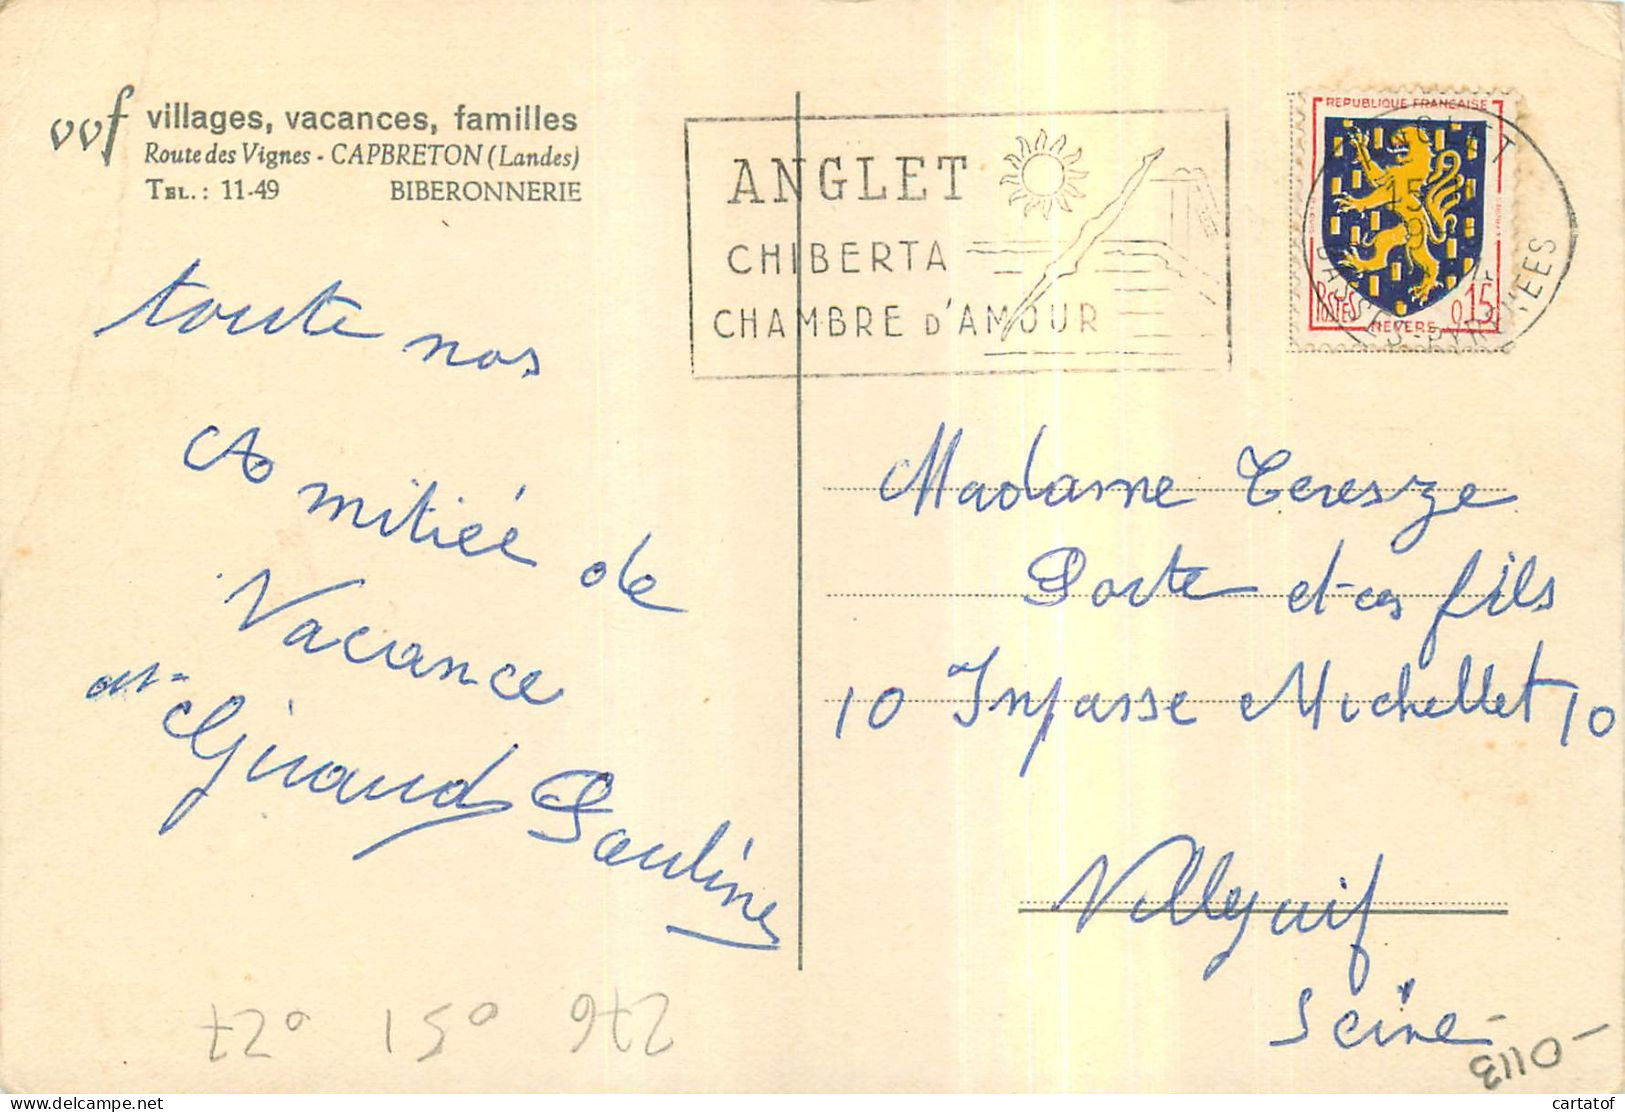 vvf villages, vacances, familles
Route des Vignes - CAPBRETON (Landes)
TEL. : 11-49 BIBERONNERIE
ANGLET
CHIBERTA
CHAMBRE D'AMOUR
REPUBLIQUE FRANCAISE
POSTES 0,15
NEVERS
ANGLET
15
BASSES-PYRENEES
toute nos
Amitiéé de
Vacance
Giraud Pauline
Madame Teresze
Porte et ces fils
10 Impasse Michellet 10
Villejuif
Seine
0113
276 150 220
cartatof